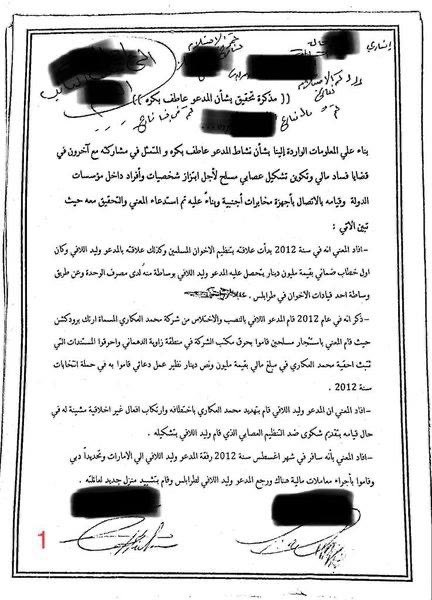 (( مذكرة تحقيق بشأن المدعو عاطف بكره ))
بناء علي المعلومات الواردة إلينا بشأن نشاط المدعو عاطف بكره و المتمثل في مشاركته مع آخرون في
قضايا فساد مالي وتكوين تشكيل عصابي مسلح لأجل ابتزاز شخصيات وأفراد داخل مؤسسات
الدولة وقيامه بالاتصال بأجهزة مخابرات أجنبية وبناءً عليه تم استدعاء المعني والتحقيق معه حيث
تبين الآتي :
-افاد المعني انه في سنة 2012 بدأت علاقته بتنظيم الاخوان المسلمين وكذلك علاقته بالمدعو وليد اللافي وكان
اول خطاب ضماني بقيمة مليون دينار يتحصل عليه المدعو وليد اللافي بوساطة منه لدى مصرف الوحدة وعن طريق
وساطة احد قيادات الاخوان في طرابلس
- ذكر انه في عام 2012 قام المدعو اللافي بالنصب والاختلاس من شركة محمد العكاري المسماة ارتك برودكشن
حيث قام المعني باستئجار مسلحين قاموا بحرق مكتب الشركة في منطقة زاوية الدهماني واحرقوا المستندات التي
تثبت احقية محمد العكاري في مبلغ مالي بقيمة مليون ونص دينار نظير عمل دعائي قاموا به في حملة انتخابات
سنة 2012 .
-افاد المعني ان المدعو وليد اللافي قام بتهديد محمد العكاري باختطافه وارتكاب افعال غير اخلاقية مشينة له في
حال قيامه بتقديم شكوى ضد التنظيم العصابي الذي قام وليد اللافي بتشكيله .
-افاد المعني بأنه سافر في شهر اغسطس سنة 2012 رفقة المدعو وليد اللافي الي الامارات وتحديداً دبي
وقاموا بأجراء معاملات مالية هناك ورجع المدعو وليد اللافي لطرابلس وقام بتشييد منزل جديد لعائلته .
1